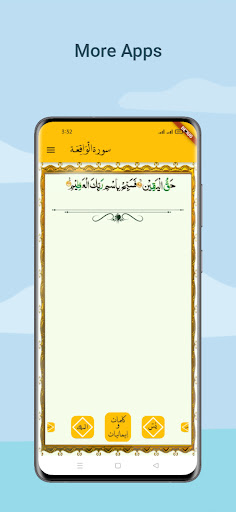 More Apps
3:52
سورة الْوَاقِعَة
حَقُّ الْيَقِيْنِ فَسَبِّحْ بِاسْمِ رَبِّكَ الْعَظِيْمِ
يٰس
کلمات
و
ایمانیات
الملك